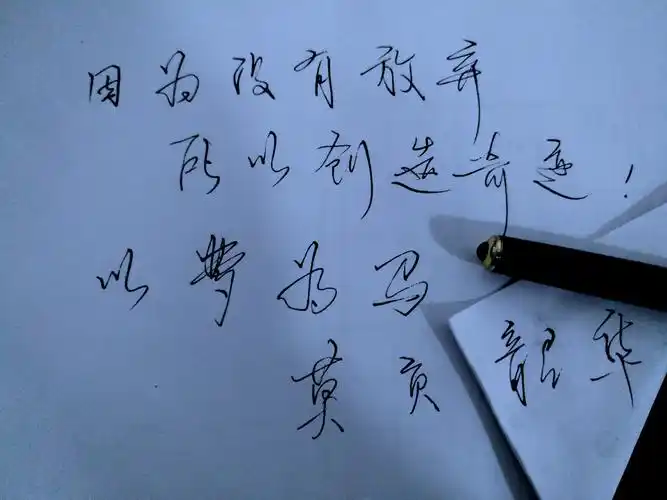 因为没有放弃
所以创造奇迹！
以夢为马
莫负韶华